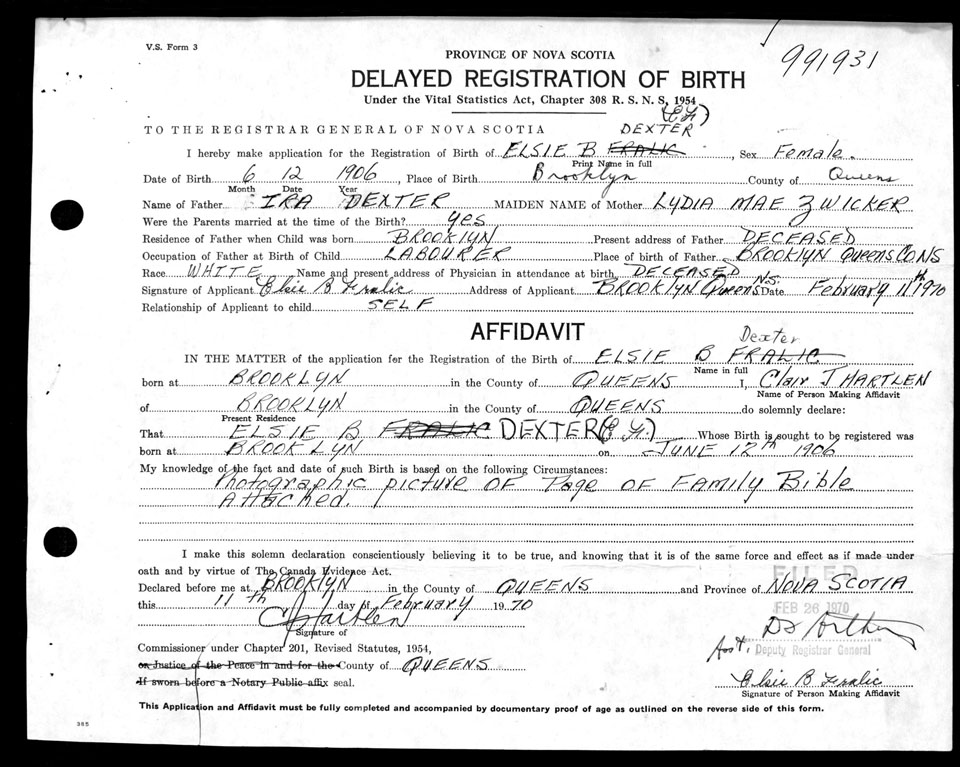 V.S. Form 3
991931
PROVINCE OF NOVA SCOTIA
DELAYED REGISTRATION OF BIRTH
Under the Vital Statistics Act, Chapter 308 R. S. N. S, 1954
TO THE REGISTRAR GENERAL OF NOVA SCOTIA DEXTER
I hereby make application for the Registration of Birth of ELSIE B FRALIC, Sex Female.
Print Name in full
Date of Birth 6 12 1906, Place of Birth Brooklyn County of Queens
Month Date Year
Name of Father IRA DEXTER MAIDEN NAME of Mother LYDIA MAE ZWICKER
Were the Parents married at the time of the Birth? yes
Residence of Father when Child was born BROOKLYN Present address of Father DECEASED
Occupation of Father at Birth of Child LABOURER Place of birth of Father BROOKLYN Queens Co. NS
Race WHITE Name and present address of Physician in attendance at birth DECEASED
Signature of Applicant Elsie B Fralic Address of Applicant BROOKLYN Queens N.S. Date February 11th 1970
Relationship of Applicant to child SELF
AFFIDAVIT
Dexter
IN THE MATTER of the application for the Registration of the Birth of ELSIE B FRALIC
Name in full
born at BROOKLYN in the County of QUEENS I, Clair J HARTLEN
Name of Person Making Affidavit
of BROOKLYN in the County of QUEENS do solemnly declare:
Present Residence
That ELSIE B FRALIC DEXTER Whose Birth is sought to be registered was
born at BROOKLYN on JUNE 12th 1906
My knowledge of the fact and date of such Birth is based on the following Circumstances:
Photographic picture OF Page OF Family Bible
Attached.
I make this solemn declaration conscientiously believing it to be true, and knowing that it is of the same force and effect as if made under
oath and by virtue of The Canada Evidence Act.
FILED
Declared before me at BROOKLYN in the County of QUEENS and Province of NOVA SCOTIA
this 11th day of February 1970
FEB 26 1970
CJ Hartlen
Signature of
Asst. Deputy Registrar General
Commissioner under Chapter 201, Revised Statutes, 1954,
or Justice of the Peace in and for the County of QUEENS
If sworn before a Notary Public affix seal.
Elsie B Fralic
Signature of Person Making Affidavit
This Application and Affidavit must be fully completed and accompanied by documentary proof of age as outlined on the reverse side of this form.
385